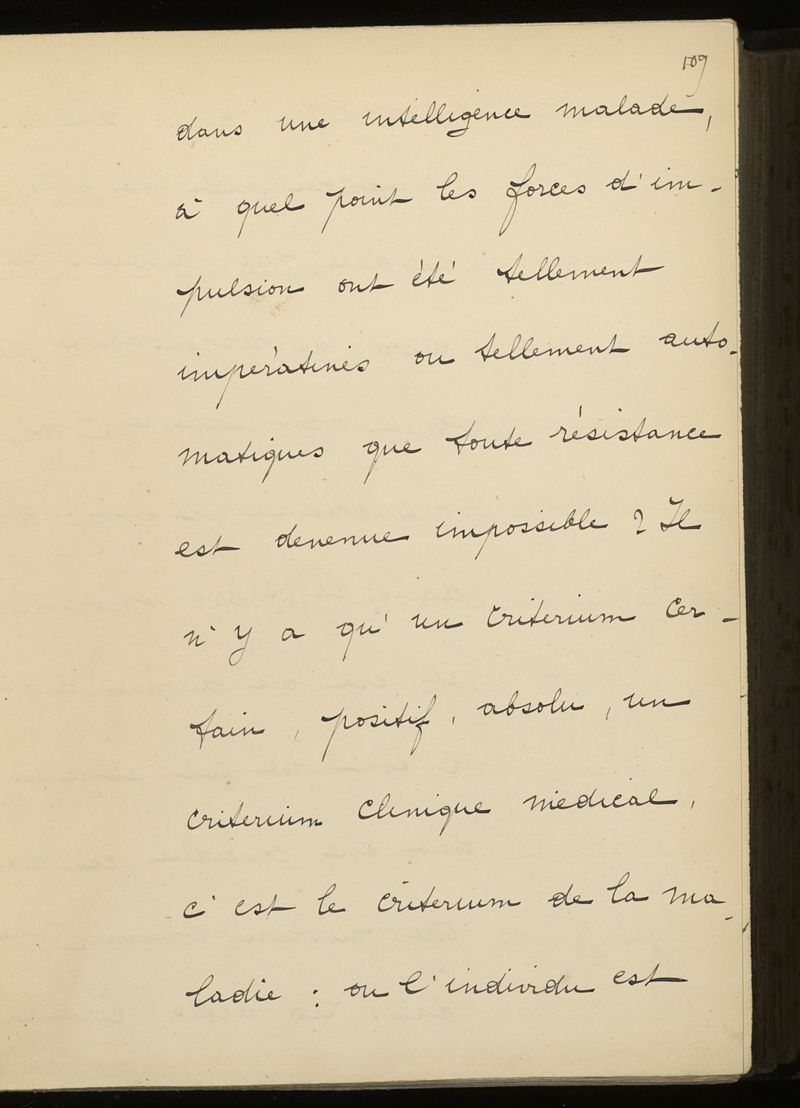 109
dans une intelligence malade,
à quel point les forces d'im-
pulsion ont été tellement
impératives ou tellement auto-
matiques que toute résistance
est devenue impossible ? Il
n'y a qu'un criterium cer-
tain, positif, absolu, un
criterium clinique médical,
c'est le criterium de la ma-
ladie : ou l'individu est